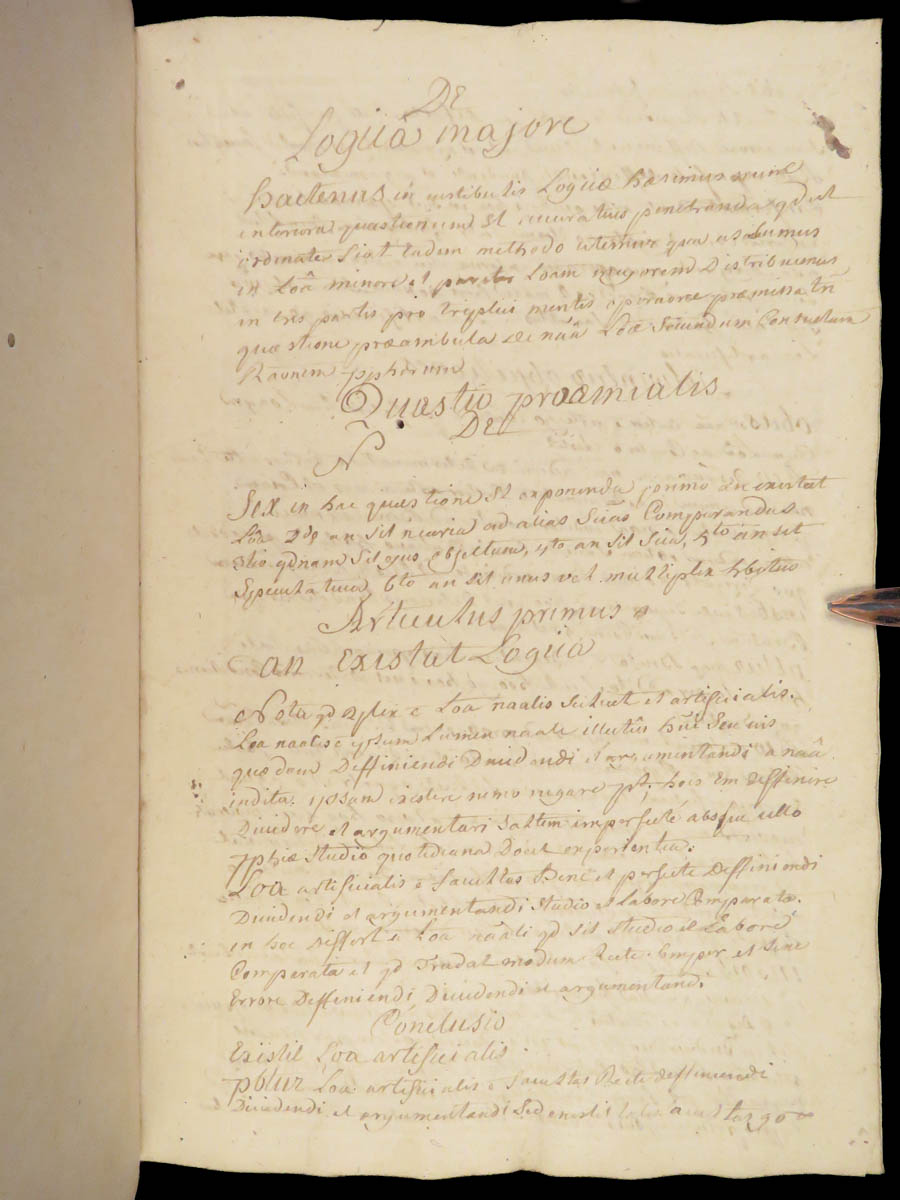 De
Logica majore
hactenus in vestibulis Logicæ hæsimus nunc
interiora quæstionum st accuratius penetranda qd ut
ordinate fiat eadem methodo utemur qua usi sumus
in Loâ minore et Loam majorem Distribuemus
in tres partes pro triplici mentis operaone præmissa tn̄
quæstione præambula de naâ Loæ Secundum Consuetam
Raonem pphorum
Quæstio proæmialis
De
N
Sex in hac quæstione st exponenda primo an existat
Loa 2do an sit nēcaria ad alias Scias Comparandas
3tio qdnam sit ejus objectum, 4to an sit scia, 5to an sit
Speculativa, 6to an sit unus vel multiplex hbitus
Articulus primus
an Existat Logica
Nota qd 2plex ē Loa naalis scilicet et artificialis.
Loa naalis ē ipsum Lumen naale illectûs seu vis
quædam Deffiniendi Dividendi et argumentandi a naâ
indita. ipsam existere nemo negare pt, hoes em deffinire
Dividere et argumentari saltem imperfectè absque ullo
pphiæ studio quotidiana Docet experientia.
Loa artificialis ē facultas Bene et perfecte Deffiniendi
Dividendi et argumentandi studio et Labore Comparata.
in hoc Differt a Loa naali qd sit studio et Labore
Comparata et qd Tradat modum Recte semper et sine
Errore Deffiniendi, Dividendi et argumentandi.
Conclusio
Existit Loa artificialis
pbtur Loa artificialis ē facultas Recte deffiniendi
Dividendi et argumentandi Sed existit facultas go